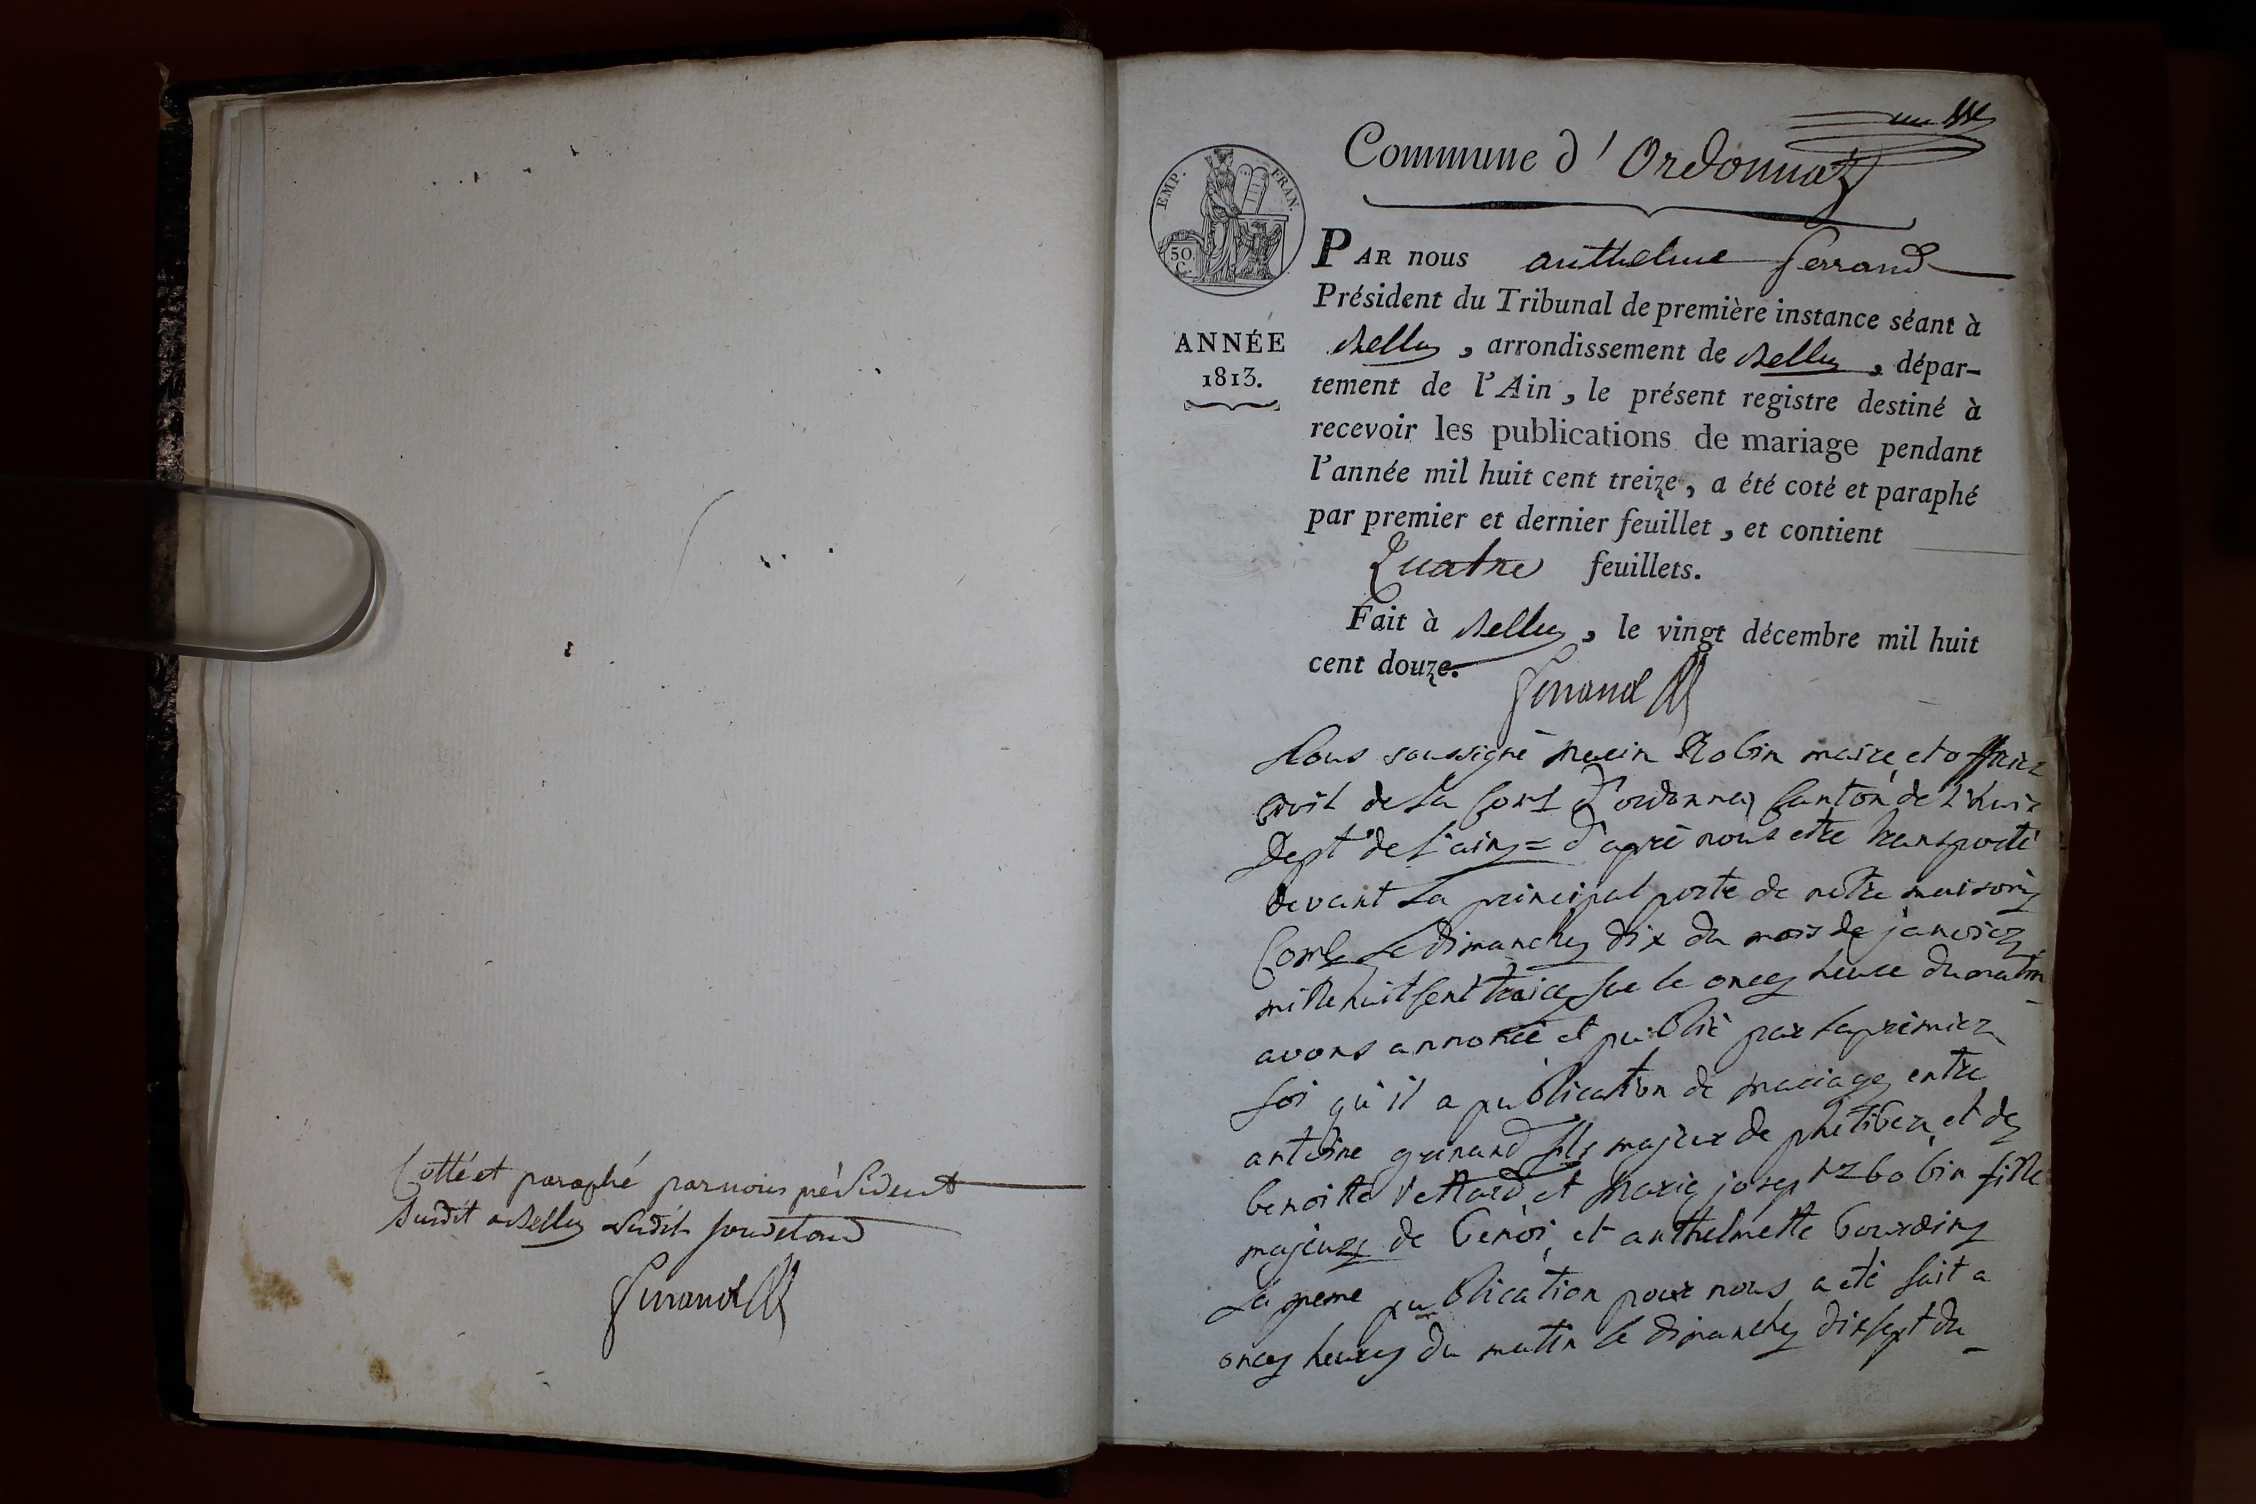 Cotté et paraphé par nous président
Susdit a Belley Ledit jour et an
Ferrand
Commune d'Ordonnaz
EMP. FRAN.
50.
C.
ANNÉE
1813.
PAR nous anthelme ferrand
Président du Tribunal de première instance séant à
Belley, arrondissement de Belley, dépar-
tement de l'Ain, le présent registre destiné à
recevoir les publications de mariage pendant
l'année mil huit cent treize, a été coté et paraphé
par premier et dernier feuillet, et contient
Quatre feuillets.
Fait à Belley, le vingt décembre mil huit
cent douze.
Ferrand
Nous soussigné Robin maire et officier
civil de la d'ordonnaz canton de L'huis
Dept de L'ain = d'apré nous etre transporté
devant La principal porte de notre maison
Comle Le dimanche dix du mois de janvier
mille huit sent traice sur le onces heure du matin
avons annoncé et publié par la premier
foi qu'il a publication de mariage entre
antoine gunand fils majeur de philiber et de
benoitte vettard et Marie josept bobin fille
majeure de benoi et anthelmette bourdin
La meme publication pour nous a eté fait a
onces heures du matin le dimanche dix sept du